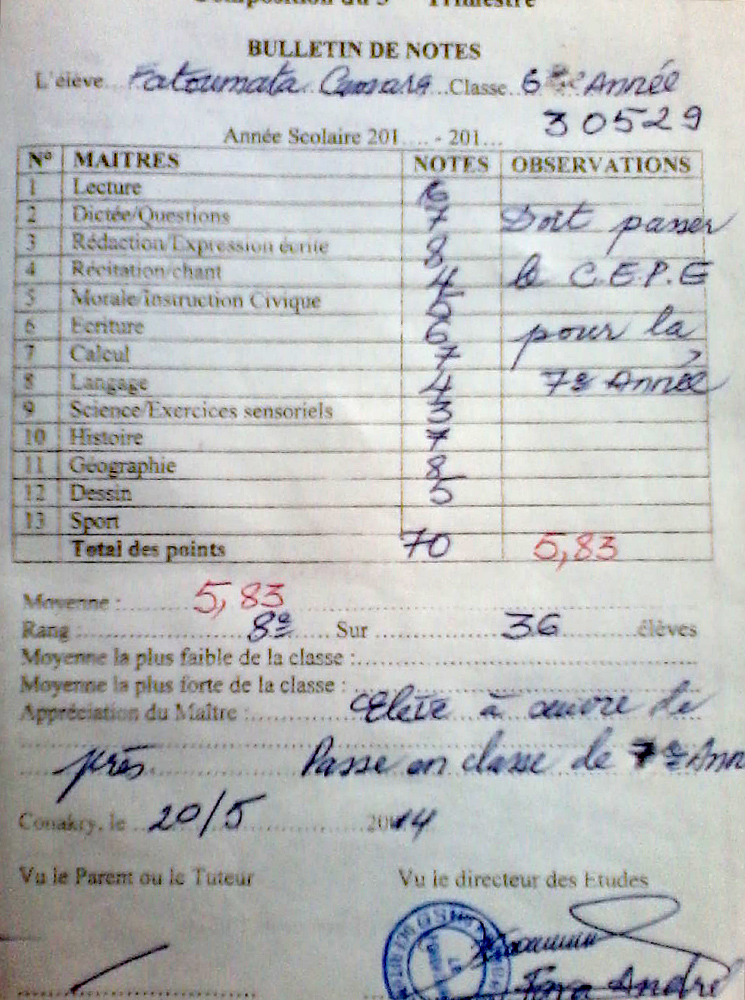 Composition du 3 Trimestre
BULLETIN DE NOTES
L'élève Fatoumata Camara Classe 6 Année
30529
Année Scolaire 201.... - 201...
N° MAITRES NOTES OBSERVATIONS
1 Lecture 6
2 Dictée/Questions 7 Doit passer
3 Rédaction/Expression écrite 8
4 Récitation/chant 4 le C.E.P.E
5 Morale/Instruction Civique 5
6 Ecriture 6 pour la
7 Calcul 7
8 Langage 4 7e Année
9 Science/Exercices sensoriels 3
10 Histoire 7
11 Géographie 8
12 Dessin 5
13 Sport
Total des points 70 5,83
Moyenne : 5,83
Rang : 8e Sur 36 élèves
Moyenne la plus faible de la classe :
Moyenne la plus forte de la classe :
Appréciation du Maître : Elève à œuvre de
près Passe en classe de 7e Ann
Conakry, le 20/5 2014
Vu le Parent ou le Tuteur Vu le directeur des Etudes
André